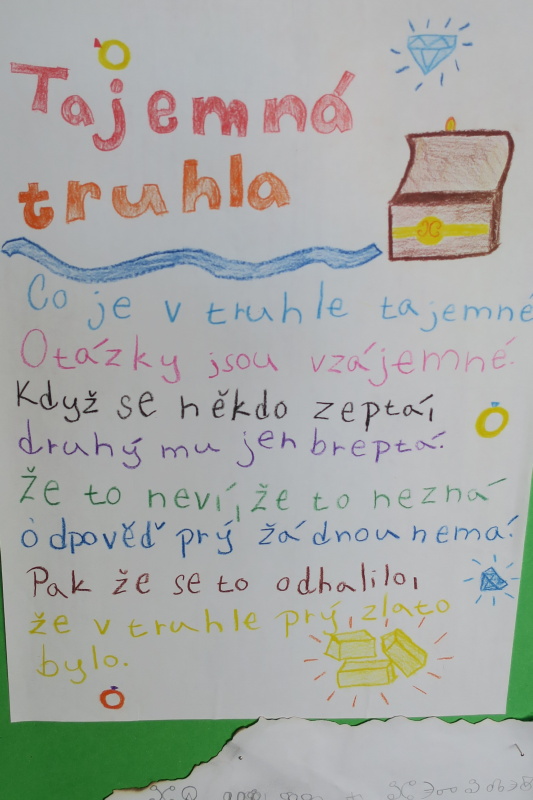 Tajemná
truhla
Co je v truhle tajemné
Otázky jsou vzájemné.
Když se někdo zeptá,
druhý mu jen breptá.
Že to neví, že to nezná
odpověď prý žádnou nemá.
Pak že se to odhalilo,
že v truhle prý zlato
bylo.